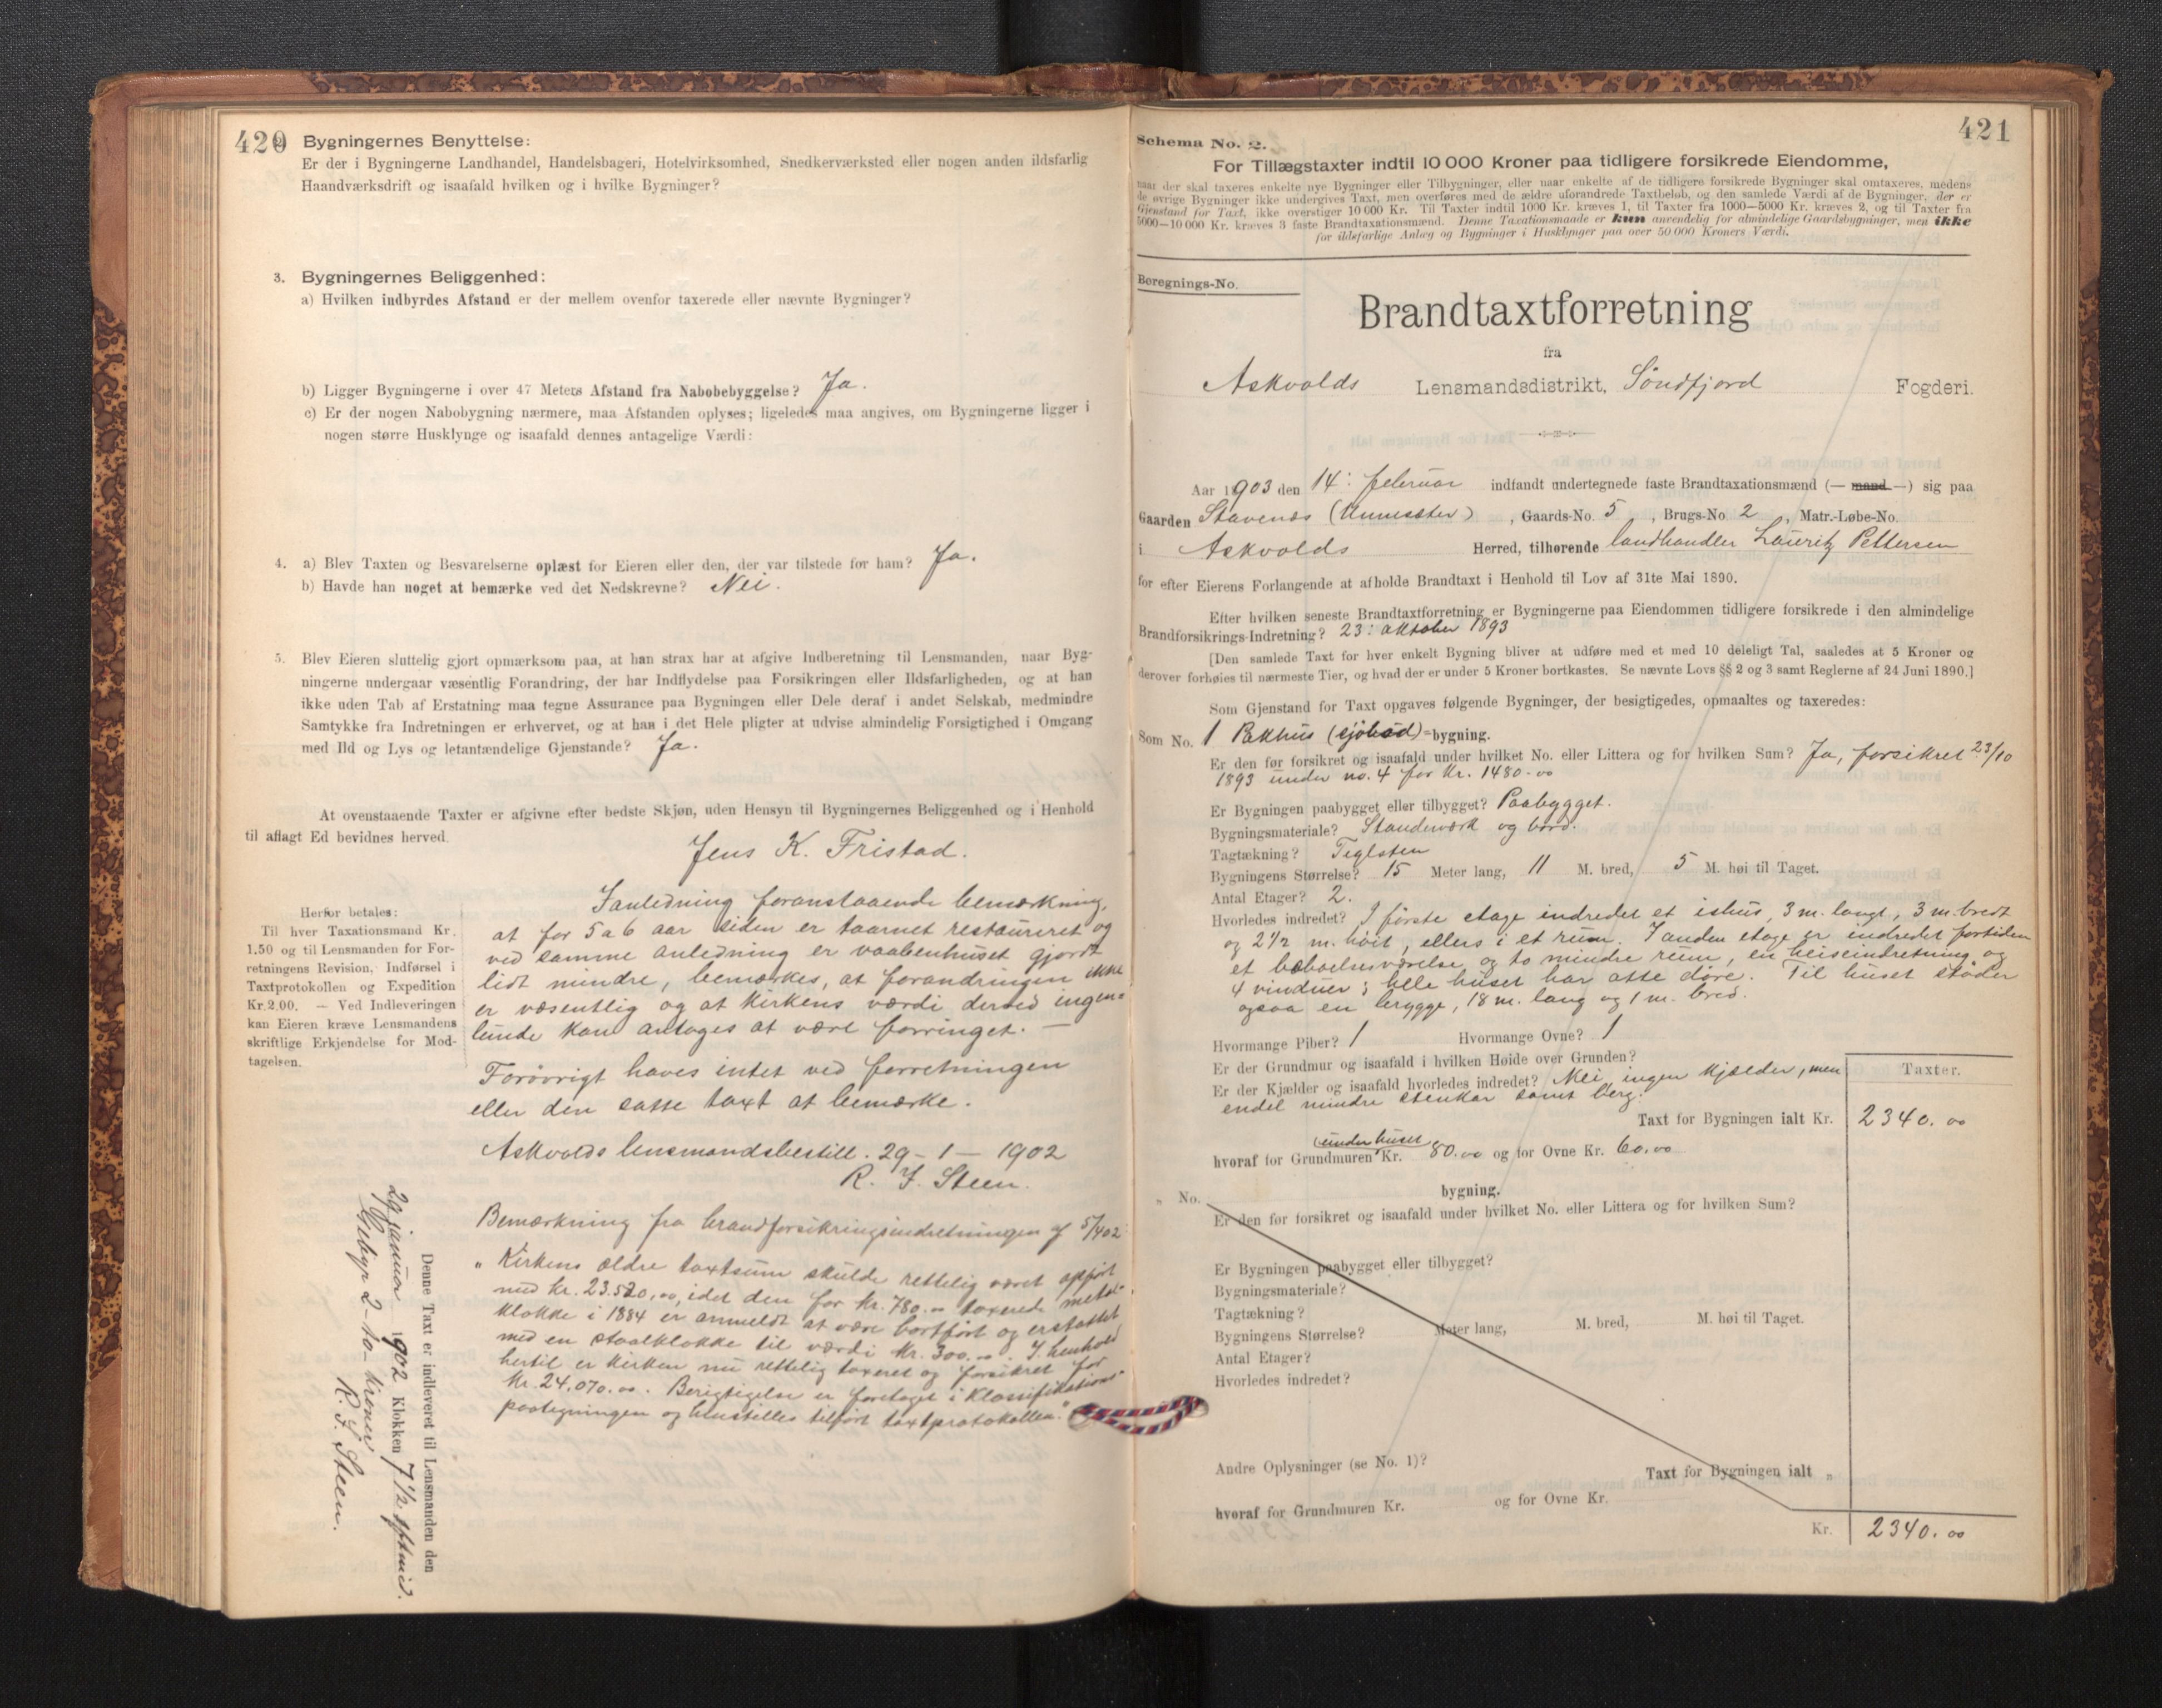 420
2. Bygningernes Benyttelse:
Er der i Bygningerne Landhandel, Handelsbageri, Hotelvirksomhed, Snedkerværksted eller nogen anden ildsfarlig
Haandværksdrift og isaafald hvilken og i hvilke Bygninger?
3. Bygningernes Beliggenhed:
a) Hvilken indbyrdes Afstand er der mellem ovenfor taxerede eller nævnte Bygninger?
b) Ligger Bygningerne i over 47 Meters Afstand fra Nabobebyggelse? Ja.
c) Er der nogen Nabobygning nærmere, maa Afstanden oplyses; ligeledes maa angives, om Bygningerne ligger i
nogen større Husklynge og isaafald dennes antagelige Værdi:
4. a) Blev Taxten og Besvarelserne oplæst for Eieren eller den, der var tilstede for ham? Ja.
b) Havde han noget at bemærke ved det Nedskrevne? Nei.
5. Blev Eieren sluttelig gjort opmærksom paa, at han strax har at afgive Indberetning til Lensmanden, naar Byg-
ningerne undergaar væsentlig Forandring, der har Indflydelse paa Forsikringen eller Ildsfarligheden, og at han
ikke uden Tab af Erstatning maa tegne Assurance paa Bygningen eller Dele deraf i andet Selskab, medmindre
Samtykke fra Indretningen er erhvervet, og at han i det Hele pligter at udvise almindelig Forsigtighed i Omgang
med Ild og Lys og letantændelige Gjenstande? Ja.
At ovenstaaende Taxter er afgivne efter bedste Skjøn, uden Hensyn til Bygningernes Beliggenhed og i Henhold
til aflagt Ed bevidnes herved.
Jens K. Fristad.
Herfor betales:
Til hver Taxationsmand Kr.
1.50 og til Lensmanden for For-
retningens Revision, Indførsel i
Taxtprotokollen og Expedition
Kr. 2.00. — Ved Indleveringen
kan Eieren kræve Lensmandens
skriftlige Erkjendelse for Mod-
tagelsen.
I anledning foranstaaende bemærkning,
at for 5 a 6 aar siden er taarnet restaureret og
ved samme anledning er vaabenhuset gjordt
lidt mindre, bemærkes, at forandringen ikke
er væsentlig og at kirkens værdi derved ingen-
lunde kan antages at være forringet. —
Forøvrigt haves intet ved forretningen
eller den satte taxt at bemærke.
Askvolds lensmandsbestill. 29 - 1 - 1902
R. F. Steen.
Bemærkning fra brandforsikringsindretningen af 5/4 02:
"Kirkens ældre taxtsum skulde rettelig været opført
med kr. 23.520,00, idet den for kr. 780.00 taxerede metal-
klokke i 1884 er anmeldt at være bortført og erstattet
med en staalklokke til værdi kr. 300.00. I henhold
hertil er kirken nu rettelig taxeret og forsikret for
kr. 24.070.00. Berigtigelse er foretaget i klassifikations-
paategningen og bestilles tilført taxtprotokollen."
Denne Taxt er indleveret til Lensmanden den
29 januar 1902 Klokken 7 1/2 eftmid.
Gebyr 2 - to - kroner
R. F. Steen.
421
Schema No. 2.
For Tillægstaxter indtil 10 000 Kroner paa tidligere forsikrede Eiendomme,
naar der skal taxeres enkelte nye Bygninger eller Tilbygninger, eller naar enkelte af de tidligere forsikrede Bygninger skal omtaxeres, medens
de øvrige Bygninger ikke undergives Taxt, men overføres med de ældre uforandrede Taxtbeløb, og den samlede Værdi af de Bygninger, der er
Gjenstand for Taxt, ikke overstiger 10 000 Kr. Til Taxter indtil 1000 Kr. kræves 1, til Taxter fra 1000—5000 Kr. kræves 2, og til Taxter fra
5000—10 000 Kr. kræves 3 faste Brandtaxationsmænd. Denne Taxationsmaade er kun anvendelig for almindelige Gaardsbygninger, men ikke
for ildsfarlige Anlæg og Bygninger i Husklynger paa over 50 000 Kroners Værdi.
Beregnings-No.
Brandtaxtforretning
fra
Askvolds Lensmandsdistrikt, Søndfjord Fogderi.
Aar 1903 den 14: februar indfandt undertegnede faste Brandtaxationsmænd (— mand —) sig paa
Gaarden Stavenes (Unnesæter), Gaards-No. 5, Brugs-No. 2, Matr.-Løbe-No.
i Askvolds Herred, tilhørende landhandler Lauritz Pettersen
for efter Eierens Forlangende at afholde Brandtaxt i Henhold til Lov af 31te Mai 1890.
Efter hvilken seneste Brandtaxtforretning er Bygningerne paa Eiendommen tidligere forsikrede i den almindelige
Brandforsikrings-Indretning? 23: oktober 1893
[Den samlede Taxt for hver enkelt Bygning bliver at udføre med et med 10 deleligt Tal, saaledes at 5 Kroner og
derover forhøies til nærmeste Tier, og hvad der er under 5 Kroner bortkastes. Se nævnte Lovs §§ 2 og 3 samt Reglerne af 24 Juni 1890.]
Som Gjenstand for Taxt opgaves følgende Bygninger, der besigtigedes, opmaaltes og taxeredes:
Som No. 1 Pakhus (sjøbod)=bygning.
Er den før forsikret og isaafald under hvilket No. eller Littera og for hvilken Sum? Ja, forsikret 23/10
1893 under no. 4 for kr. 1480.00
Er Bygningen paabygget eller tilbygget? Paabygget.
Bygningsmateriale? Standværk og bord.
Tagtækning? Teglsten
Bygningens Størrelse? 15 Meter lang, 11 M. bred, 5 M. høi til Taget.
Antal Etager? 2.
Hvorledes indredet? I første etage indredet et ishus, 3 m. langt, 3 m. bredt
og 2 1/2 m. høit, ellers i et rum. I anden etage er indredet fortiden
et beboelsesværelse og to mindre rum, en heiseindretning og
4 vinduer; hele huset har otte døre. Til huset støder
ogsaa en brygge, 18 m. lang og 1 m. bred.
Hvormange Piber? 1 Hvormange Ovne? 1
Er der Grundmur og isaafald i hvilken Høide over Grunden?
Er der Kjælder og isaafald hvorledes indredet? Nei, ingen kjælder, men
endel mindre stenkar samt berg.
Taxter.
Taxt for Bygningen ialt Kr. 2340.00
(under huset
hvoraf for Grundmuren Kr. 80.00 og for Ovne Kr. 60.00
„ No. bygning.
Er den før forsikret og isaafald under hvilket No. eller Littera og for hvilken Sum?
Er Bygningen paabygget eller tilbygget?
Bygningsmateriale?
Tagtækning?
Bygningens Størrelse? Meter lang, M. bred, M. høi til Taget.
Antal Etager?
Hvorledes indredet?
Andre Oplysninger (se No. 1)?
Taxt for Bygningen ialt „
hvoraf for Grundmuren Kr. og for Ovne Kr.
Kr. 2340.00